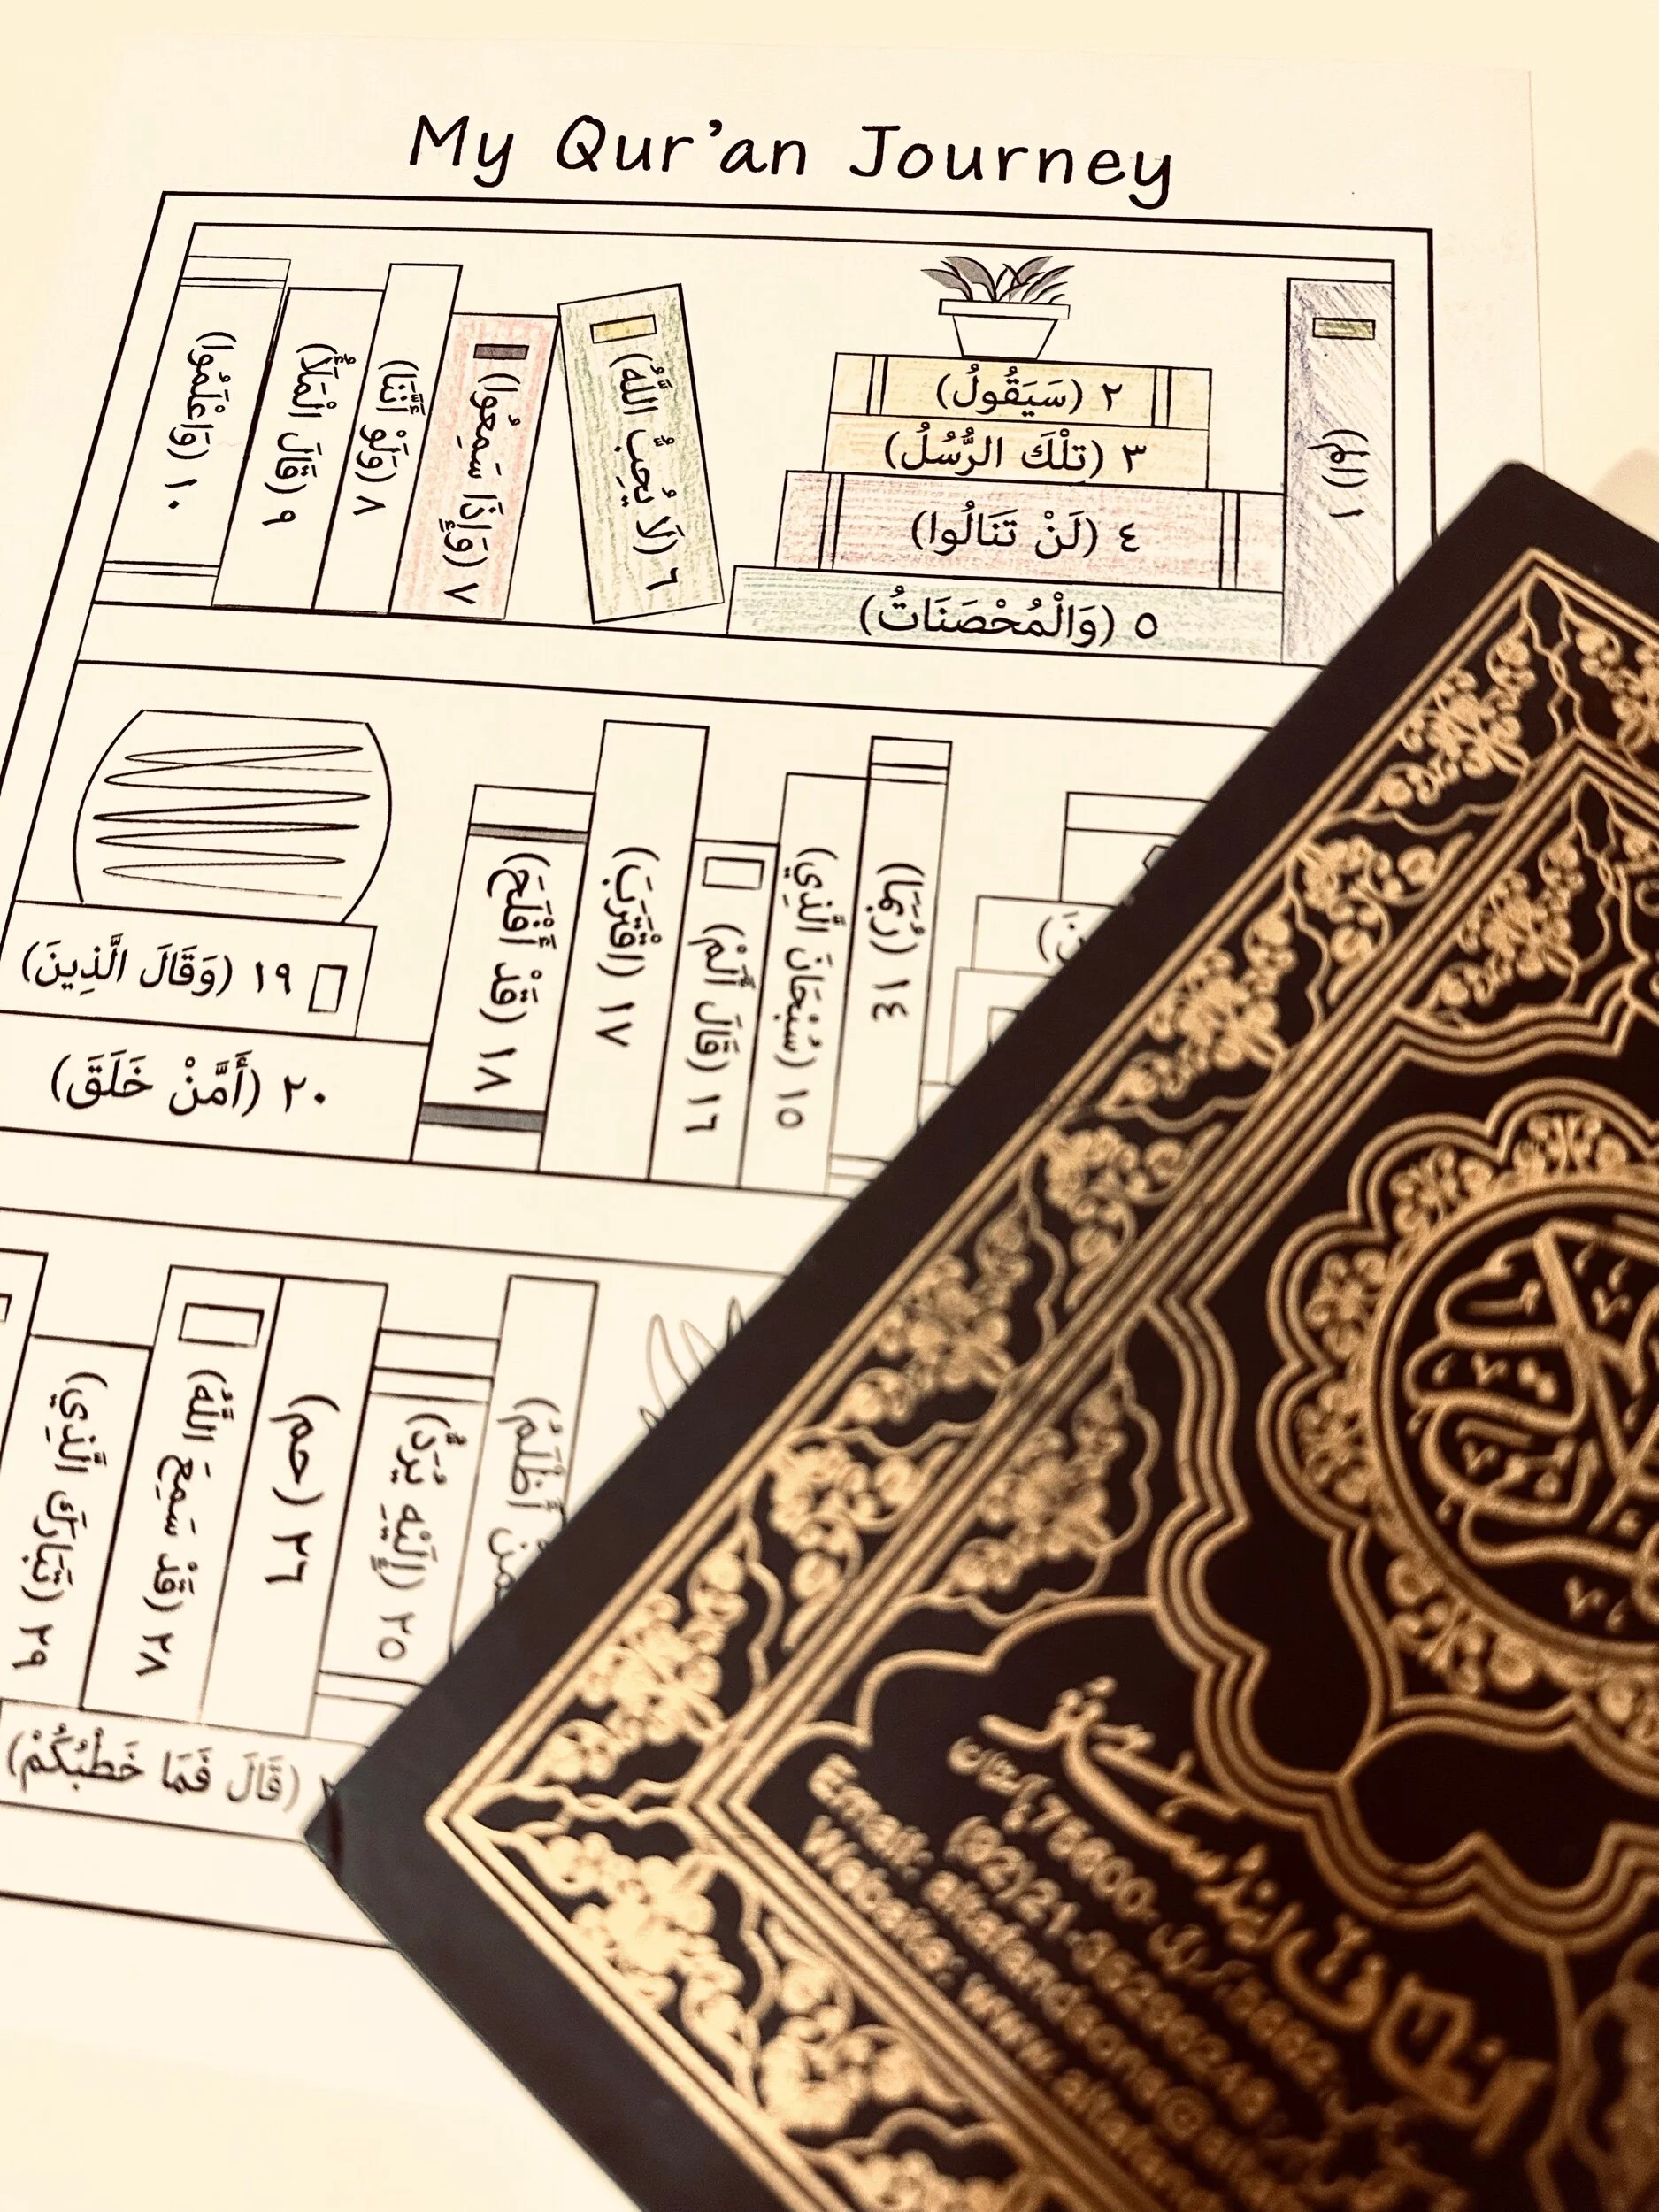 My Qur'an Journey
١ (الم)
٢ (سَيَقُولُ)
٣ (تِلْكَ الرُّسُلُ)
٤ (لَنْ تَنَالُوا)
٥ (وَالْمُحْصَنَاتُ)
٦ (لَا يُحِبُّ اللَّهُ)
٧ (وَإِذَا سَمِعُوا)
٨ (وَلَوْ أَنَّنَا)
٩ (قَالَ الْمَلَأُ)
١٠ (وَاعْلَمُوا)
١٤ (رُبَمَا)
١٥ (سُبْحَانَ الَّذِي)
١٦ (قَالَ أَلَمْ)
١٧ (اقْتَرَبَ)
١٨ (قَدْ أَفْلَحَ)
١٩ (وَقَالَ الَّذِينَ)
٢٠ (أَمَّنْ خَلَقَ)
أَظْلَمُ)
٢٥ (إِلَيْهِ يُرَدُّ)
٢٦ (حم)
(قَالَ فَمَا خَطْبُكُمْ)
٢٨ (قَدْ سَمِعَ اللَّهُ)
٢٩ (تَبَارَكَ الَّذِي)
Email:
Website: